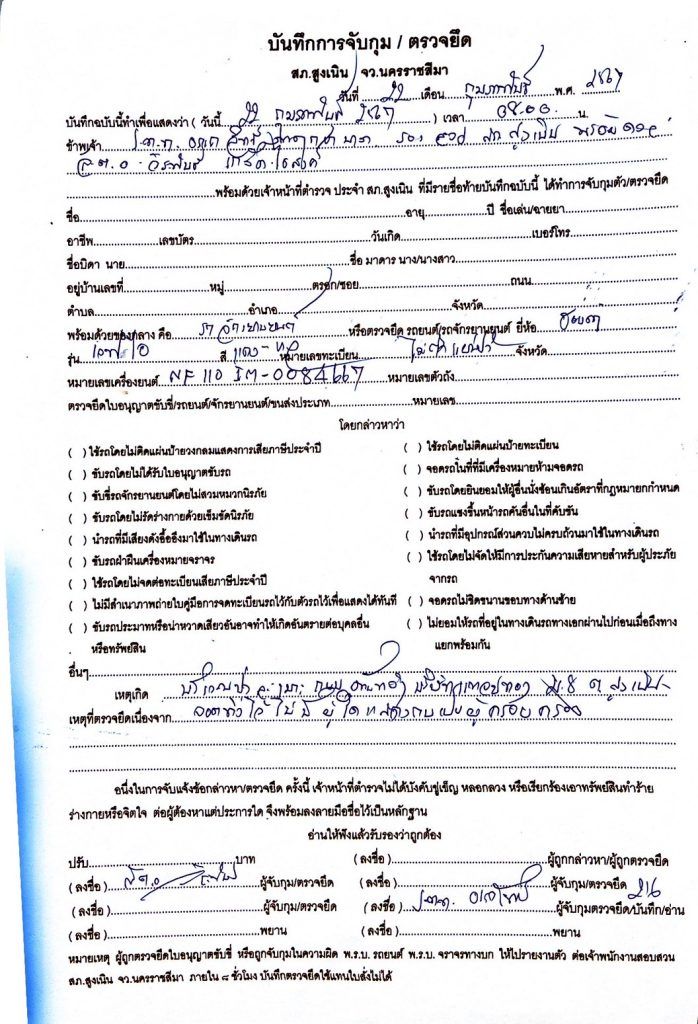 บันทึกการจับกุม / ตรวจยึด
สภ.สูงเนิน จว.นครราชสีมา
วันที่ 22 เดือน กุมภาพันธ์ พ.ศ. 2567
บันทึกฉบับนี้ทำเพื่อแสดงว่า ( วันนี้ 22 กุมภาพันธ์ 2567 ) เวลา 08.00 น.
ข้าพเจ้า ร.ต.ท. รอง สภ สูงเนิน พร้อมด้วย
ส.ต.อ.
พร้อมด้วยเจ้าหน้าที่ตำรวจ ประจำ สภ.สูงเนิน ที่มีรายชื่อท้ายบันทึกฉบับนี้ ได้ทำการจับกุมตัว/ตรวจยึด
ชื่อ อายุ ปี ชื่อเล่น/ฉายยา
อาชีพ เลขบัตร วันเกิด เบอร์โทร
ชื่อบิดา นาย ชื่อ มาดาร นาง/นางสาว
อยู่บ้านเลขที่ หมู่ ตรอก/ซอย ถนน
ตำบล อำเภอ จังหวัด
พร้อมด้วยของกลาง คือ รถจักรยานยนต์ หรือตรวจยึด รถยนต์/รถจักรยานยนต์ ยี่ห้อ ฮอนด้า
รุ่น สี แดง-เทา หมายเลขทะเบียน ไม่ติดแผ่นป้าย จังหวัด
หมายเลขเครื่องยนต์ NF 110 IM-0084667 หมายเลขตัวถัง
ตรวจยึดใบอนุญาตขับขี่/รถยนต์/จักรยานยนต์/ขนส่งประเภท หมายเลข
โดยกล่าวหาว่า
( ) ใช้รถโดยไม่ติดแผ่นป้ายวงกลมแสดงการเสียภาษีประจำปี ( ) ใช้รถโดยไม่ติดแผ่นป้ายทะเบียน
( ) ขับรถโดยไม่ได้รับใบอนุญาตขับรถ ( ) จอดรถในที่ที่มีเครื่องหมายห้ามจอดรถ
( ) ขับขี่รถจักรยานยนต์โดยไม่สวมหมวกนิรภัย ( ) ขับรถโดยยินยอมให้ผู้อื่นนั่งซ้อนเกินอัตราที่กฎหมายกำหนด
( ) ขับรถโดยไม่รัดร่างกายด้วยเข็มขัดนิรภัย ( ) ขับรถแซงขึ้นหน้ารถคันอื่นในที่คับขัน
( ) นำรถที่มีเสียงดังอื้ออึงมาใช้ในทางเดินรถ ( ) นำรถที่มีอุปกรณ์ส่วนควบไม่ครบถ้วนมาใช้ในทางเดินรถ
( ) ขับรถฝ่าฝืนเครื่องหมายจราจร ( ) ใช้รถโดยไม่จัดให้มีการประกันความเสียหายสำหรับผู้ประภัย
( ) ใช้รถโดยไม่จดต่อทะเบียนเสียภาษีประจำปี จากรถ
( ) ไม่มีสำเนาภาพถ่ายใบคู่มือการจดทะเบียนรถไว้กับตัวรถไว้เพื่อแสดงได้ทันที ( ) จอดรถไม่ชิดขนานขอบทางด้านซ้าย
( ) ขับรถประมาทหรือน่าหวาดเสียวอันอาจทำให้เกิดอันตรายต่อบุคลอื่น ( ) ไม่ยอมให้รถที่อยู่ในทางเดินรถทางเอกผ่านไปก่อนเมื่อถึงทาง
หรือทรัพย์สิน แยกพร้อมกัน
อื่นๆ
เหตุเกิด บริเวณป่า ถนน ม.8 ต สูงเนิน
เหตุที่ตรวจยึดเนื่องจาก จอดทิ้งไว้ ไม่มีผู้ใดแสดงตนเป็นผู้ครอบครอง
อนึ่งในการจับแจ้งข้อกล่าวหา/ตรวจยึด ครั้งนี้ เจ้าหน้าที่ตำรวจไม่ได้บังคับขู่เข็ญ หลอกลวง หรือเรียกร้องเอาทรัพย์สินทำร้าย
ร่างกายหรือจิตใจ ต่อผู้ต้องหาแต่ประการใด จึงพร้อมลงลายมือชื่อไว้เป็นหลักฐาน
อ่านให้ฟังแล้วรับรองว่าถูกต้อง
ปรับ บาท ( ลงชื่อ ) ผู้ถูกกล่าวหา/ผู้ถูกตรวจยึด
( ลงชื่อ ) ส.ต.อ ผู้จับกุม/ตรวจยึด ( ลงชื่อ ) ผู้จับกุม/ตรวจยึด
( ลงชื่อ ) ผู้จับกุม/ตรวจยึด ( ลงชื่อ ) ร.ต.ท. ผู้จับกุมตรวจยึด/บันทึก/อ่าน
( ลงชื่อ ) พยาน ( ลงชื่อ ) พยาน
หมายเหตุ ผู้ถูกตรวจยึดใบอนุญาตขับขี่ หรือถูกจับกุมในความผิด พ.ร.บ. รถยนต์ พ.ร.บ. จราจรทางบก ให้ไปรายงานตัว ต่อเจ้าพนักงานสอบสวน
สภ.สูงเนิน จว.นครราชสีมา ภายใน ๘ ชั่วโมง บันทึกตรวจยึดใช้แทนใบสั่งไม่ได้